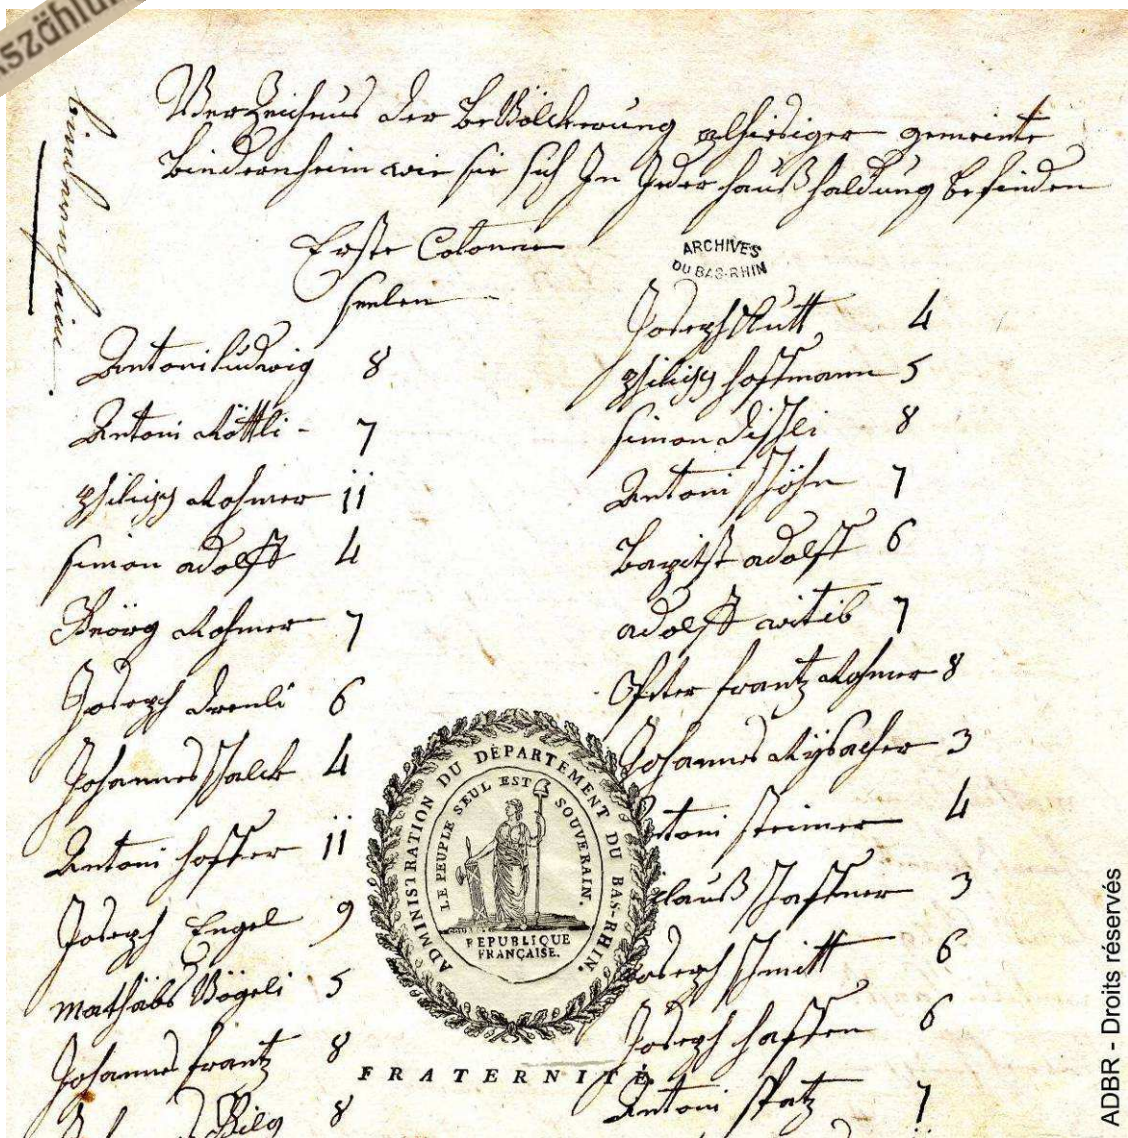 szählun
bindernheim
Verzeichnus der Bevölckerung alhiesiger gemeinte
Bindernheim wie sie sich In Jeder haußhaldung befinden
Erste Colonne
seelen
ARCHIVES
DU BAS-RHIN
Antoni ludwig 8
Antoni Röttli - 7
philipp Rohmer 11
simon adolff 4
Geörg Rohmer 7
Joseph 6
Johannes schalck 4
Antoni 11
Joseph Engel 9
mathäbs Vögeli 5
Johannes frantz 8
8
Joseph Kutt 4
philipp hoffmann 5
simon dischli 8
Antoni schöhn 7
Baptist adolff 6
adolff witib 7
frantz Rohmer 8
Johannes 3
ntoni steimer 4
clauß schaffner 3
oseph schmitt 6
Joseph haffen 6
Antoni spatz 7
ADMINISTRATION DU DÉPARTEMENT DU BAS-RHIN.
LE PEUPLE SEUL EST SOUVERAIN.
REPUBLIQUE
FRANÇAISE.
FRATERNITÉ
ADBR - Droits réservés